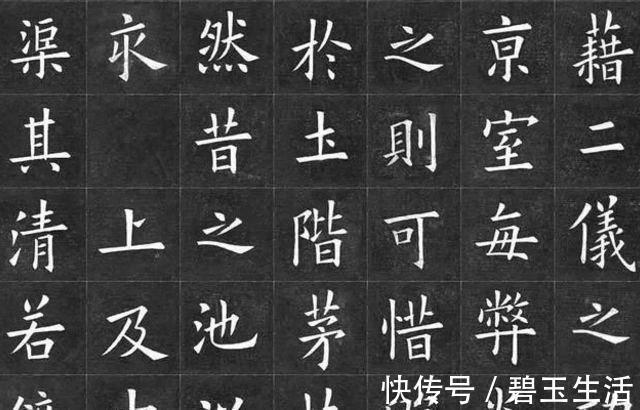 藉二儀之
京室每弊
之則可惜
於土階茅
然昔之池
上及
渠其清若
快传号/碧玉生活